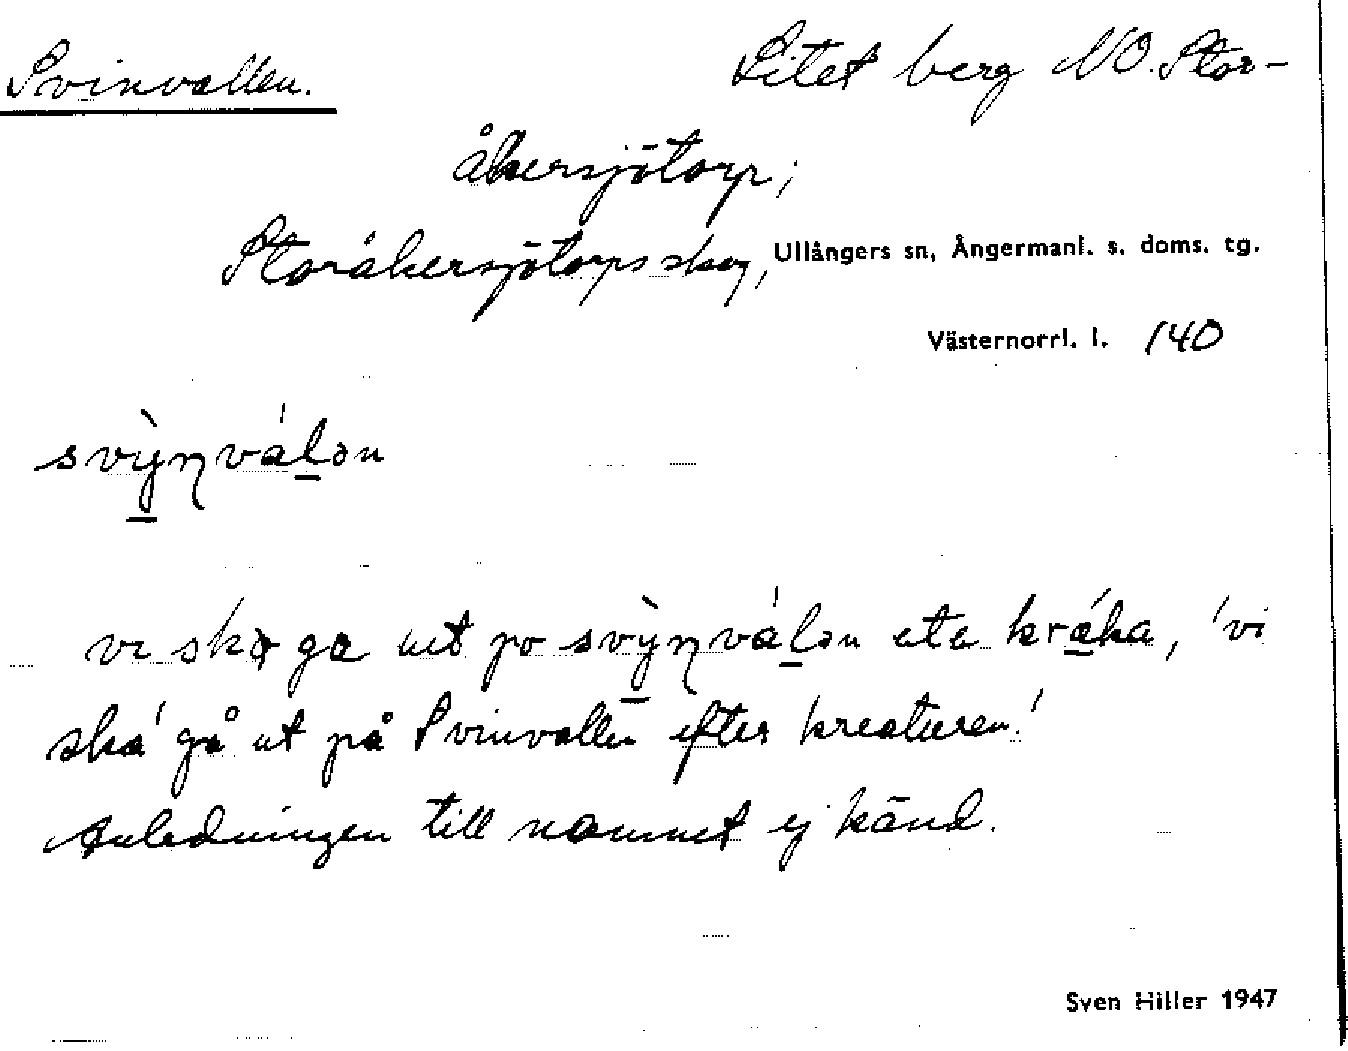 Svinvallen. Litet berg NO. Stor-
åkersjötorp;
Storåkersjötorps skog, Ullångers sn, Ångermanl. s. doms. tg.
Västernorrl. l. 140
svỳŋválən
vi ska ga ut po svỳŋválən ete kráka, 'vi
ska' gå ut på Svinvallen efter kreaturen.'
Anledningen till namnet ej känd.
Sven Hiller 1947